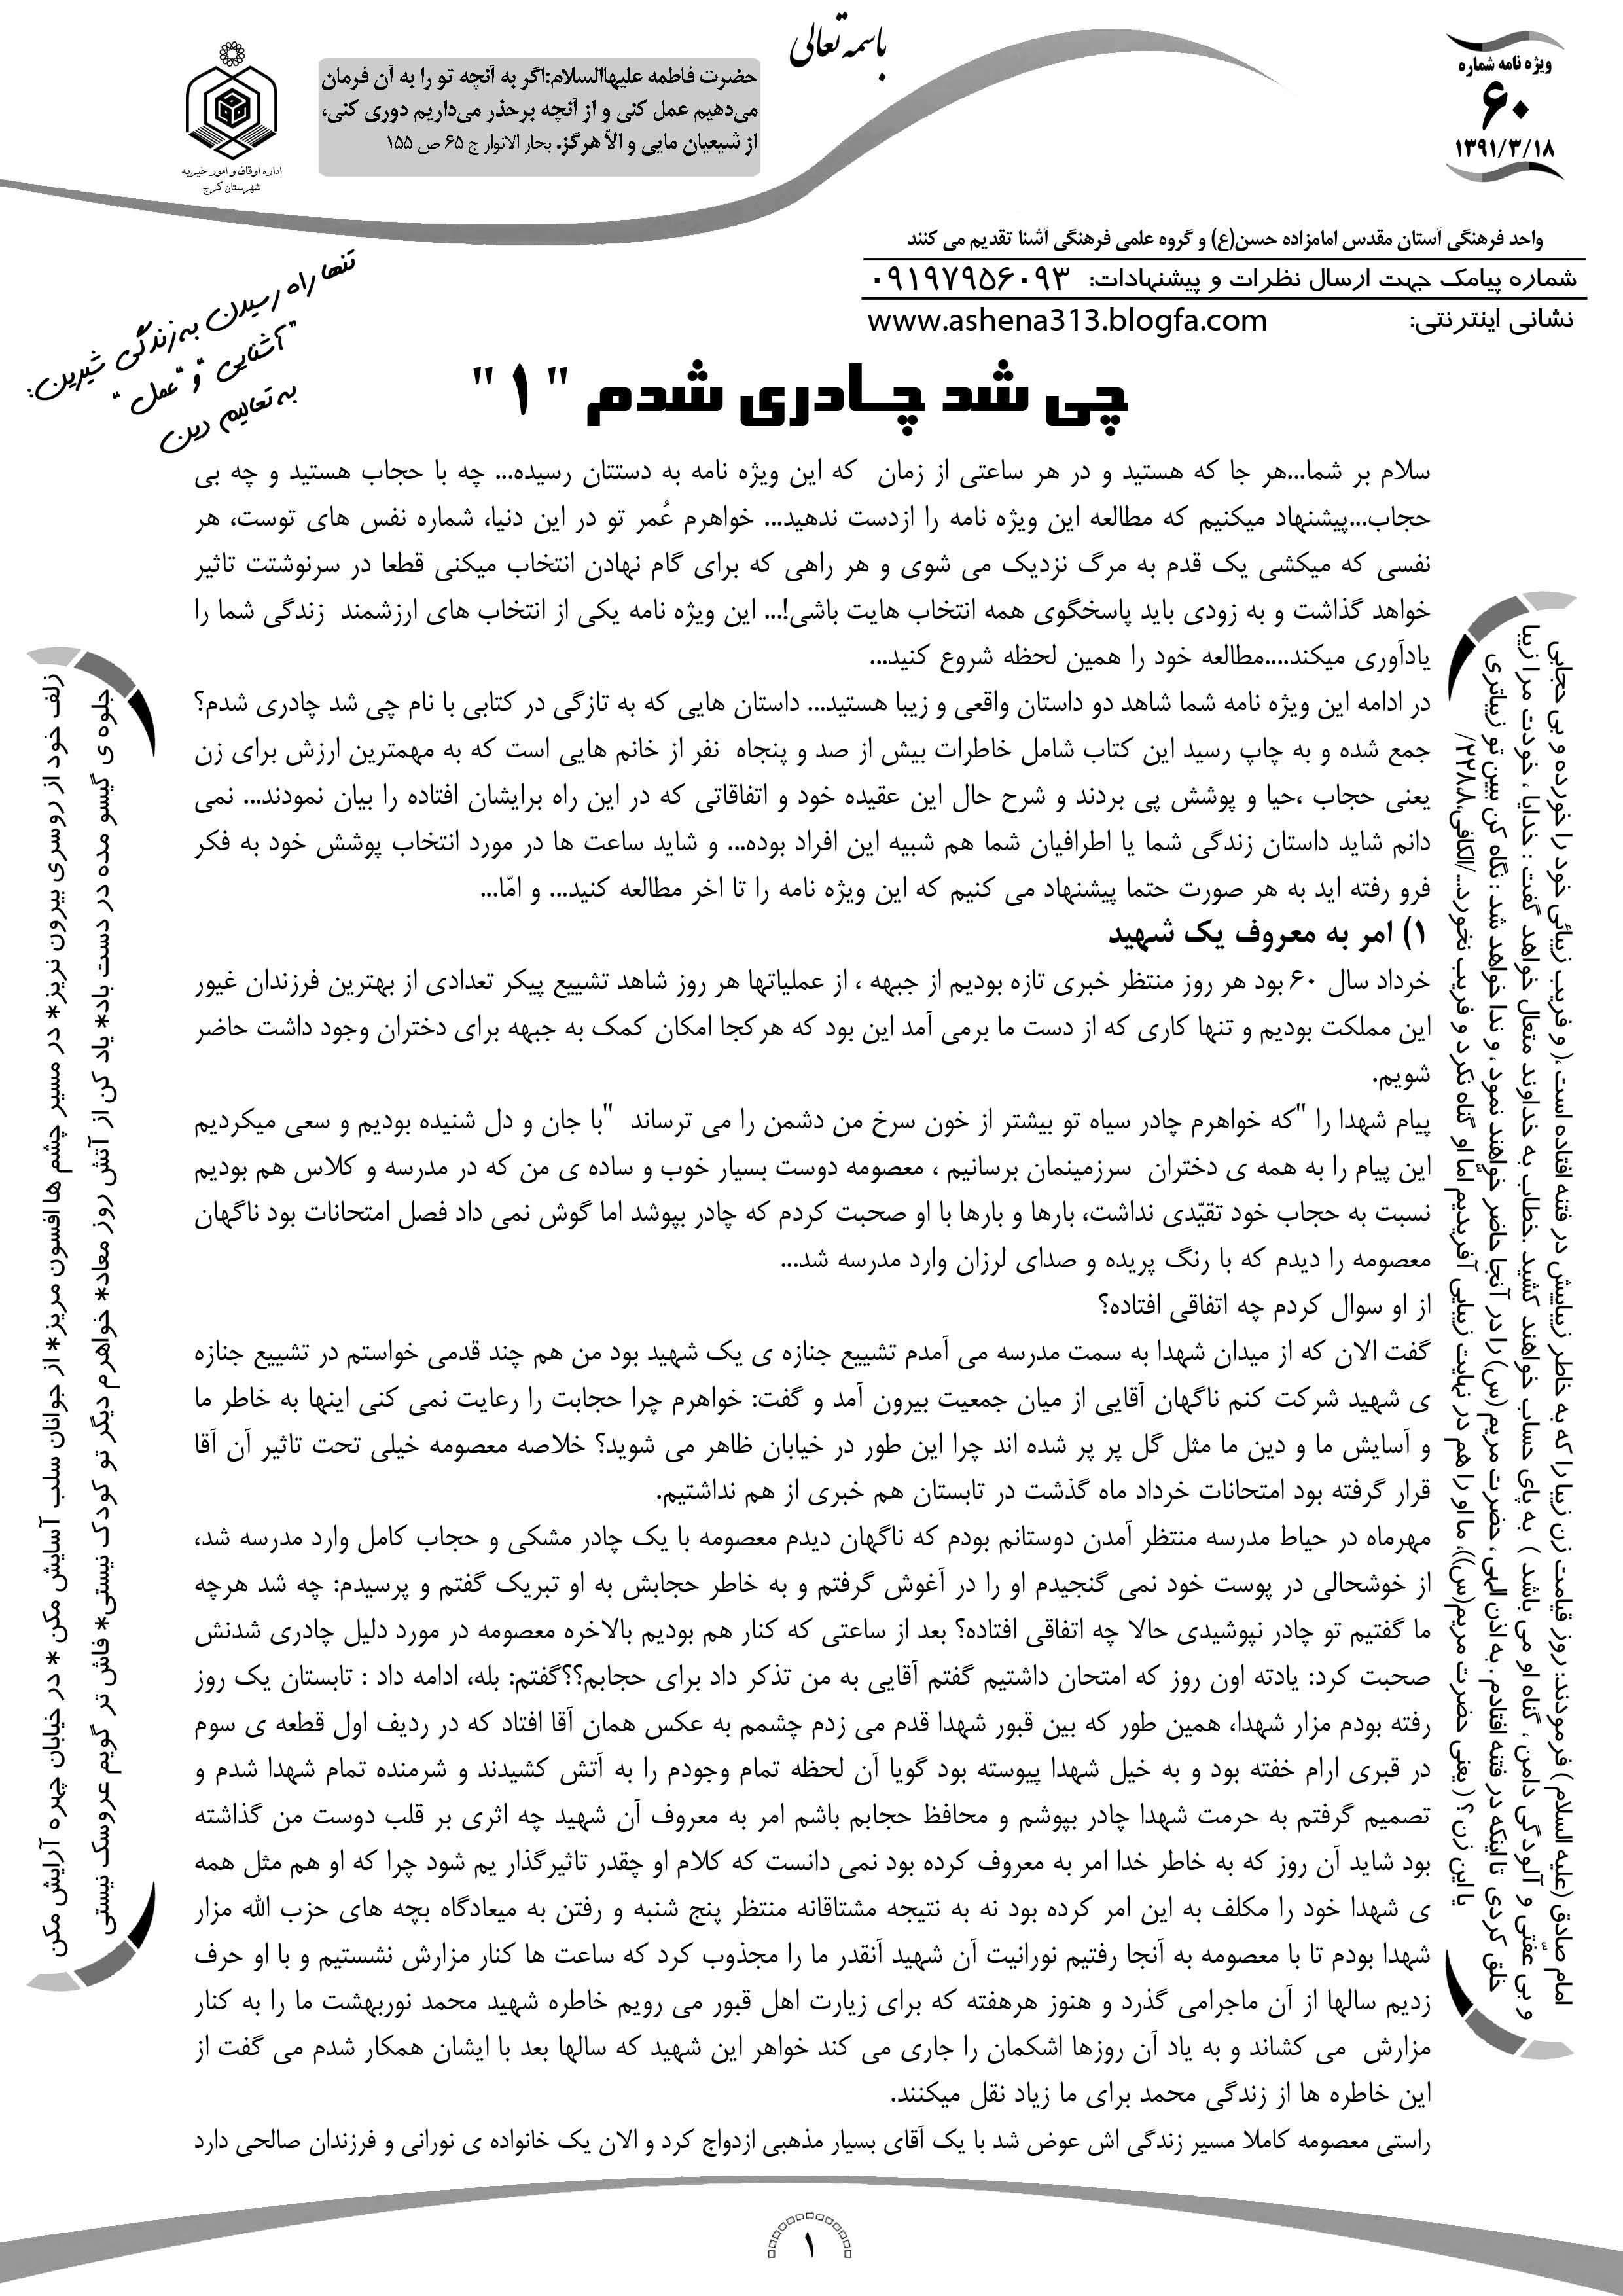 باسمه تعالی
ویژه نامه شماره
۶۰
۱۳۹۱/۳/۱۸
حضرت فاطمه علیهاالسلام:اگر به آنچه تو را به آن فرمان
می‌دهیم عمل کنی و از آنچه برحذر می‌داریم دوری کنی،
از شیعیان مایی و الاّ هرگز. بحار الانوار ج ۶۵ ص ۱۵۵
اداره اوقاف و امور خیریه
شهرستان کرج
واحد فرهنگی آستان مقدس امامزاده حسن(ع) و گروه علمی فرهنگی آشنا تقدیم می کنند
شماره پیامک جهت ارسال نظرات و پیشنهادات: ۰۹۱۹۷۹۵۶۰۹۳
نشانی اینترنتی: www.ashena313.blogfa.com
تنها راه رسیدن به زندگی شیرین:
"آشنایی" و "عمل"
به تعالیم دین
چی شد چادری شدم "۱"
سلام بر شما...هر جا که هستید و در هر ساعتی از زمان که این ویژه نامه به دستتان رسیده... چه با حجاب هستید و چه بی
حجاب...پیشنهاد میکنیم که مطالعه این ویژه نامه را ازدست ندهید... خواهرم عُمر تو در این دنیا، شماره نفس های توست، هر
نفسی که میکشی یک قدم به مرگ نزدیک می شوی و هر راهی که برای گام نهادن انتخاب میکنی قطعا در سرنوشتت تاثیر
خواهد گذاشت و به زودی باید پاسخگوی همه انتخاب هایت باشی!... این ویژه نامه یکی از انتخاب های ارزشمند زندگی شما را
یادآوری میکند....مطالعه خود را همین لحظه شروع کنید...
در ادامه این ویژه نامه شما شاهد دو داستان واقعی و زیبا هستید... داستان هایی که به تازگی در کتابی با نام چی شد چادری شدم؟
جمع شده و به چاپ رسید این کتاب شامل خاطرات بیش از صد و پنجاه نفر از خانم هایی است که به مهمترین ارزش برای زن
یعنی حجاب ،حیا و پوشش پی بردند و شرح حال این عقیده خود و اتفاقاتی که در این راه برایشان افتاده را بیان نمودند... نمی
دانم شاید داستان زندگی شما یا اطرافیان شما هم شبیه این افراد بوده... و شاید ساعت ها در مورد انتخاب پوشش خود به فکر
فرو رفته اید به هر صورت حتما پیشنهاد می کنیم که این ویژه نامه را تا اخر مطالعه کنید... و امّا...
۱) امر به معروف یک شهید
خرداد سال ۶۰ بود هر روز منتظر خبری تازه بودیم از جبهه ، از عملیاتها هر روز شاهد تشییع پیکر تعدادی از بهترین فرزندان غیور
این مملکت بودیم و تنها کاری که از دست ما برمی آمد این بود که هرکجا امکان کمک به جبهه برای دختران وجود داشت حاضر
شویم.
پیام شهدا را "که خواهرم چادر سیاه تو بیشتر از خون سرخ من دشمن را می ترساند "با جان و دل شنیده بودیم و سعی میکردیم
این پیام را به همه ی دختران سرزمینمان برسانیم ، معصومه دوست بسیار خوب و ساده ی من که در مدرسه و کلاس هم بودیم
نسبت به حجاب خود تقیّدی نداشت، بارها و بارها با او صحبت کردم که چادر بپوشد اما گوش نمی داد فصل امتحانات بود ناگهان
معصومه را دیدم که با رنگ پریده و صدای لرزان وارد مدرسه شد...
از او سوال کردم چه اتفاقی افتاده؟
گفت الان که از میدان شهدا به سمت مدرسه می آمدم تشییع جنازه ی یک شهید بود من هم چند قدمی خواستم در تشییع جنازه
ی شهید شرکت کنم ناگهان آقایی از میان جمعیت بیرون آمد و گفت: خواهرم چرا حجابت را رعایت نمی کنی اینها به خاطر ما
و آسایش ما و دین ما مثل گل پر پر شده اند چرا این طور در خیابان ظاهر می شوید؟ خلاصه معصومه خیلی تحت تاثیر آن آقا
قرار گرفته بود امتحانات خرداد ماه گذشت در تابستان هم خبری از هم نداشتیم.
مهرماه در حیاط مدرسه منتظر آمدن دوستانم بودم که ناگهان دیدم معصومه با یک چادر مشکی و حجاب کامل وارد مدرسه شد،
از خوشحالی در پوست خود نمی گنجیدم او را در آغوش گرفتم و به خاطر حجابش به او تبریک گفتم و پرسیدم: چه شد هرچه
ما گفتیم تو چادر نپوشیدی حالا چه اتفاقی افتاده؟ بعد از ساعتی که کنار هم بودیم بالاخره معصومه در مورد دلیل چادری شدنش
صحبت کرد: یادته اون روز که امتحان داشتیم گفتم آقایی به من تذکر داد برای حجابم؟؟گفتم: بله، ادامه داد : تابستان یک روز
رفته بودم مزار شهدا، همین طور که بین قبور شهدا قدم می زدم چشمم به عکس همان آقا افتاد که در ردیف اول قطعه ی سوم
در قبری ارام خفته بود و به خیل شهدا پیوسته بود گویا آن لحظه تمام وجودم را به آتش کشیدند و شرمنده تمام شهدا شدم و
تصمیم گرفتم به حرمت شهدا چادر بپوشم و محافظ حجابم باشم امر به معروف آن شهید چه اثری بر قلب دوست من گذاشته
بود شاید آن روز که به خاطر خدا امر به معروف کرده بود نمی دانست که کلام او چقدر تاثیرگذار یم شود چرا که او هم مثل همه
ی شهدا خود را مکلف به این امر کرده بود نه به نتیجه مشتاقانه منتظر پنج شنبه و رفتن به میعادگاه بچه های حزب الله مزار
شهدا بودم تا با معصومه به آنجا رفتیم نورانیت آن شهید آنقدر ما را مجذوب کرد که ساعت ها کنار مزارش نشستیم و با او حرف
زدیم سالها از آن ماجرامی گذرد و هنوز هرهفته که برای زیارت اهل قبور می رویم خاطره شهید محمد نوربهشت ما را به کنار
مزارش می کشاند و به یاد آن روزها اشکمان را جاری می کند خواهر این شهید که سالها بعد با ایشان همکار شدم می گفت از
این خاطره ها از زندگی محمد برای ما زیاد نقل میکنند.
راستی معصومه کاملا مسیر زندگی اش عوض شد با یک آقای بسیار مذهبی ازدواج کرد و الان یک خانواده ی نورانی و فرزندان صالحی دارد
امام صادق (علیه السلام) فرمودند: روز قیامت زن زیبا را که به خاطر زیباییش در فتنه افتاده است ،( و فریب زیبائی خود را خورده و بی حجابی
و بی عفتی و آلودگی دامن ، گناه او می باشد ) به پای حساب خواهند کشید .خطاب به خداوند متعال خواهد گفت : خدایا ، خودت مرا زیبا
خلق کردی تا اینکه در فتنه افتادم . به اذن الهی ، حضرت مریم (س) را در آنجا حاضر خواهند نمود ، و ندا خواهد شد : نگاه کن ببین تو زیباتری
یا این زن ؟ ( یعنی حضرت مریم(س))، ما او را هم در نهایت زیبایی آفریدیم امّا او گناه نکرد و فریب نخورد.../الکافی،۲۲۸،۸/
جلوه ی گیسو مده در دست باد* یاد کن از آتش روز معاد* خواهرم دیگر تو کودک نیستی* فاش تر گویم عروسک نیستی
زلف خود از روسری بیرون نریز* در مسیر چشم ها افسون مریز* از جوانان سلب آسایش مکن * در خیابان چهره آرایش مکن
۱